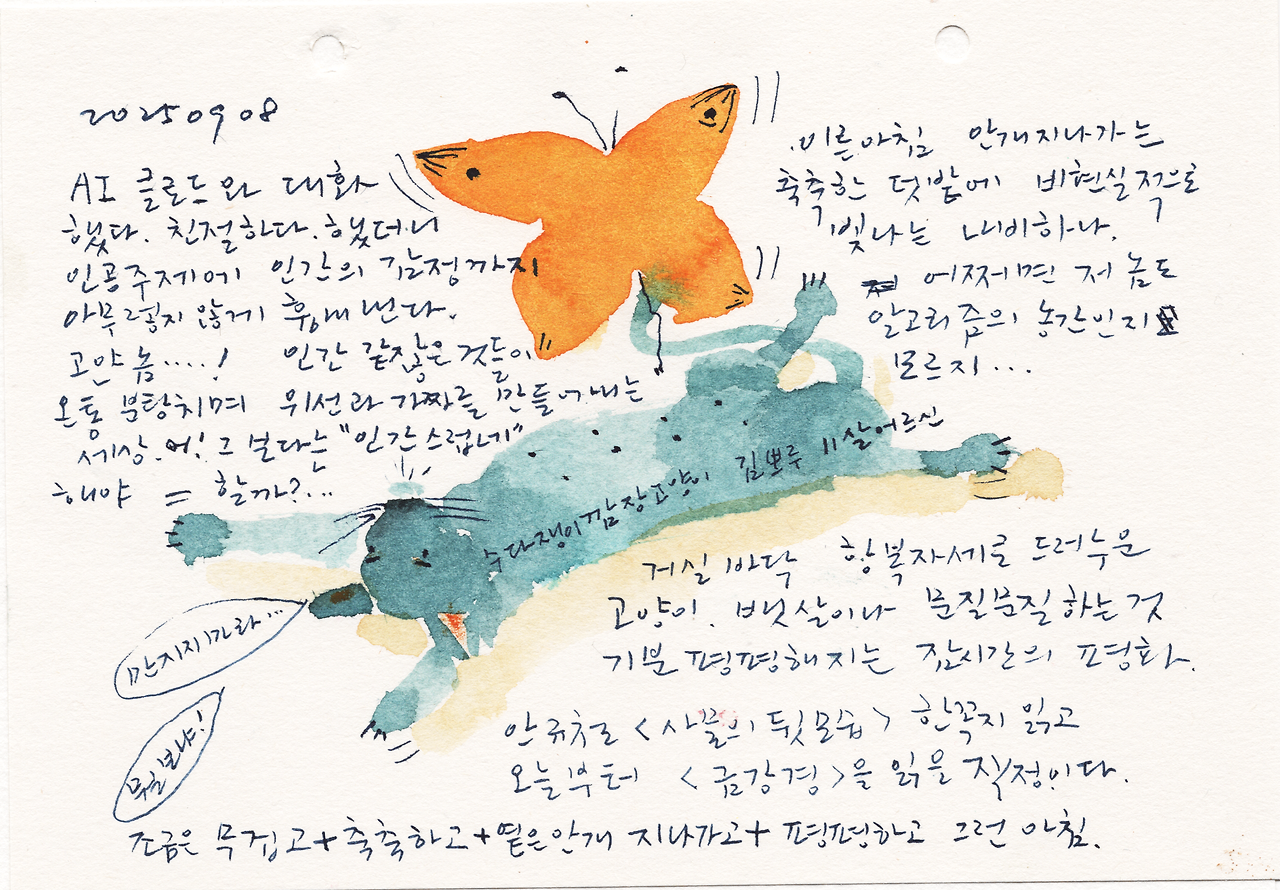 20250908
AI 클로드와 대화
했다. 친절하다. 했더니
인공주제에 인간의 감정까지
아무렇지 않게 흉내낸다.
고얀놈....! 인간 같잖은 것들이
온통 분탕치며 위선과 가짜를 만들어내는
세상. 에! 그 보다는 "인간스럽네"
해야 = 할까?...
.이른아침 안개지나가는
축축한 텃밭에 비현실적으로
빛나는 나비하나.
어쩌면 저 놈도
알고리즘의 농간인지
모르지...
수다쟁이깜장고양이 김뽀루 11살어르신
만지지마라...
뭘보냐!
거실 바닥 항복자세로 드러누운
고양이. 뱃살이나 문질문질 하는 것
기분 평평해지는 잠시간의 평화.
안규철 <사물의 뒷모습> 한꼭지 읽고
오늘부터 <금강경>을 읽을 작정이다.
조금은 무겁고+축축하고+옅은안개 지나가고+ 평평하고 그런 아침.